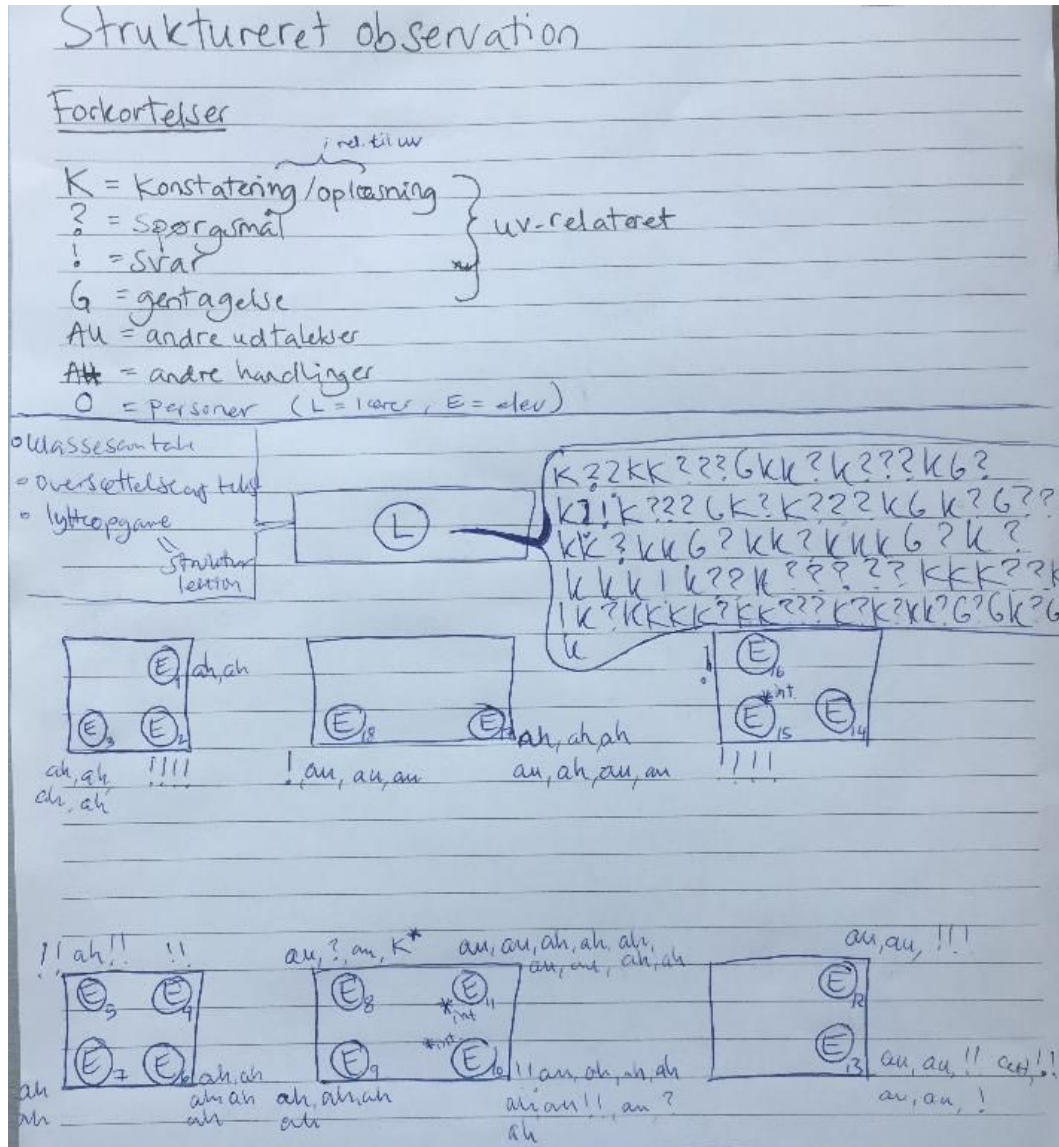 Struktureret observation
Forkortelser
i rel. til uv
K = Konstatering/oplæsning
? = Spørgsmål
! = svar
uv-relateret
G = gentagelse
AU = andre udtalelser
AH = andre handlinger
O = personer (L = lærer, E = elev)
klassesamtale
oversættelse af tekst
lytteopgave
struktur
lektion
L
K??KK???GKK?K???KG?
K?!K???GK?K???KGK?G??
KK?KKG?KK?KKKG?K?
KKK!K??K?????KKK??K
!K?KKKK?KK???K?K?KK?G?GK?G
K
E1 ah, ah
E3 E2
ah, ah, !!!!
ah, ah
E18 ah, ah, ah
! au, au, au au, ah, au, au
! E16
*int.
E15 E14
!!!!
!! ah!! !!
E5 E4
E7 E6 ah, ah
ah ah ah
ah ah
au, ?, au, K* au, au, ah, ah, ah,
au, au, ah, ah
E8 E11
*int
*int
E9 E10 !! au, ah, ah, ah
ah, ah, ah au, au!!, au ?
ah ah
au, au, !!!
E12
E13 au, au, !! !!
au, au, !